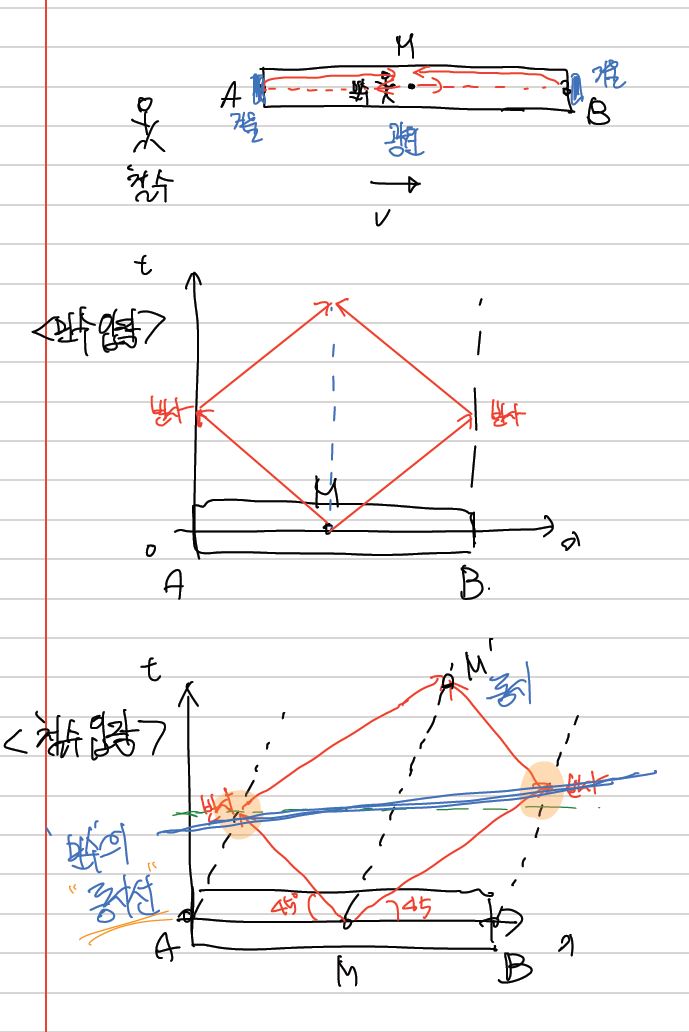 M
A
B
거울
거울
광원
철수
민수
v
t
<민수 입장>
반사
반사
M
0
x
A
B
t
M'
동시
<철수 입장>
반사
반사
'민수'의
"동시선"
45°
45
A
M
B
x